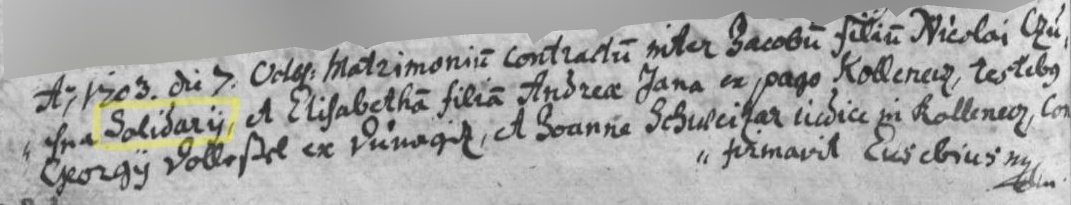 A; 1703. die 7. Octob: Matrimoniū contractū inter Jacobū filiū Nicolai
Solidarij, et Elisabethā filiā Andreæ Jana ex pago Kollenecz, testibus
Georgij ex et Joanne Schweitzar iudice in Kollenecz, Con
„ firmavit Eusebius